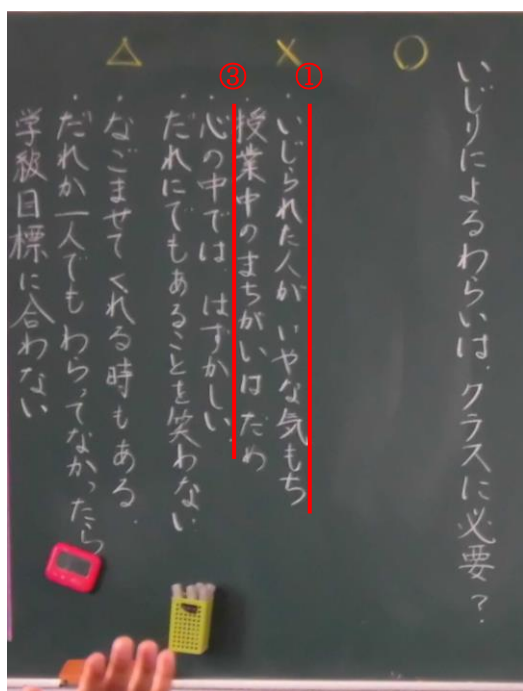 いじりによるわらいは、クラスに必要？
○
×
①
・いじられた人が いやな気もち
・授業中のまちがいはだめ
③
・心の中では、はずかしい。
・だれにでもあることを笑わない
△
・なごませてくれる時もある。
・だれか一人でもわらってなかったら
学級目標に合わない